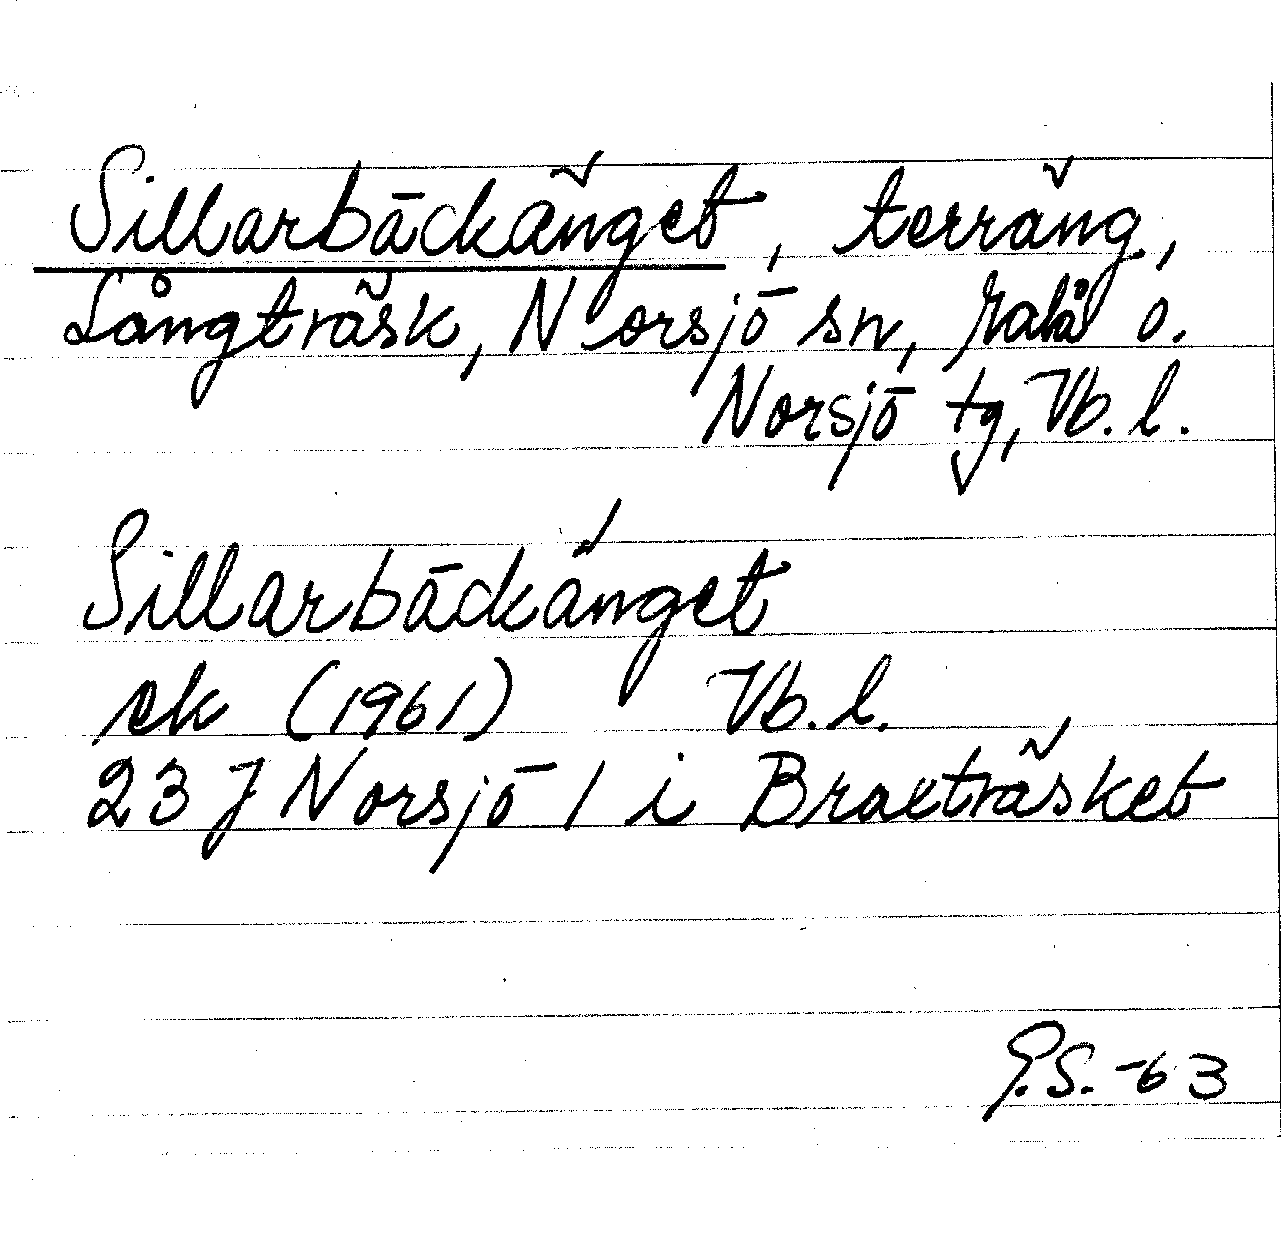 Sillarbäckänget, terräng,
Långträsk, Norsjö sn, Malå o.
Norsjö tg, Vb. l.
Sillarbäckänget
ek (1961) Vb. l.
23 J Norsjö 1 i Braxträsket
G.S. -63